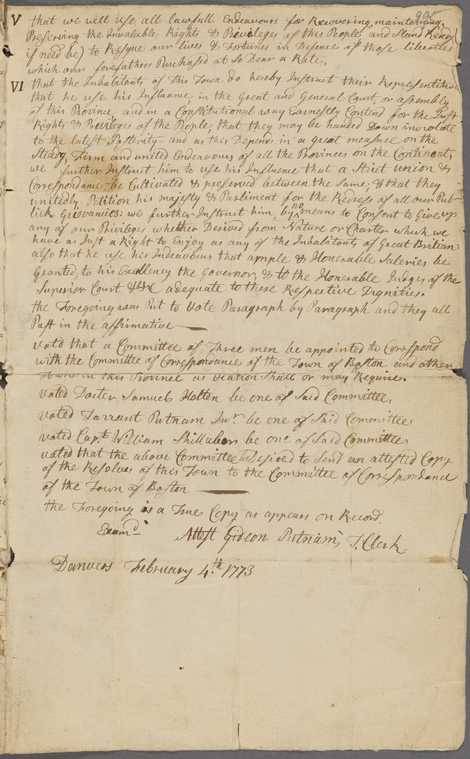 V that we will use all Lawfull Endeavours for Recovering, maintaining,
Preserving the Invaluable Rights & Privileges of this People and Stand Ready
if need be) to Resque our lives & Fortunes in Defence of those liberties
which our forefathers Purchased at So Dear a Rate.
VI that the Inhabitants of this Town do hereby Instruct their Representitive
that he use his Influence in the Great and General Court or assembly
of this Province, and in a Constitutional way Earnestly Contend for the Just
Rights & Privileges of the People, that they may be handed Down inviolate
to the latest Posterity - and as this Depends in a great measure on the
Steady, Firm and united Endeavours of all the Provinces on the Continant,
we further Instruct him to use his Influence that a Strict union &
Corespondance be Cultivated & preserved between the Same, & that they
unitedly Petition his majesty & Parliment for the Redress of all our Pub-
lick Grievances: we further Instruct him, by no means to Consent to Give up
any of our Privileges whether Derived from Nature or Charter which we
have as Just a Right to Enjoy as any of the Inhabitants of Great Britian:
also that he use his Indeavours that ample & Honerable Saleries be
Granted, to his Excellency the Governor, & to the Honerable Judges of the
Superior Court &c adequate to these Respective Dignities.
the Foregoing was Put to Vote Paragraph by Paragraph and they all
Past in the affirmative
Voted that a Committee of Three men be appointed to Correspond
with the Committee of Correspondance of the Town of Boston and other
Towns in this Province as Ocation Shall or may Require.
Voted Docter Samuel Holten be one of Said Committee,
Voted Tarrant Putnam Junr. be one of Said Committee
Voted Capt. William Shillaber be one of Said Committee,
Voted that the above Committee be Desired to Send an attested Copy
of the Resolves of this Town to the Committee of Correspondence
of the Town of Boston
the Foregoing is a True Copy as appears on Record.
Examd.
Attest Gideon Putnam, T. Clerk
Danvers February 4th. 1773